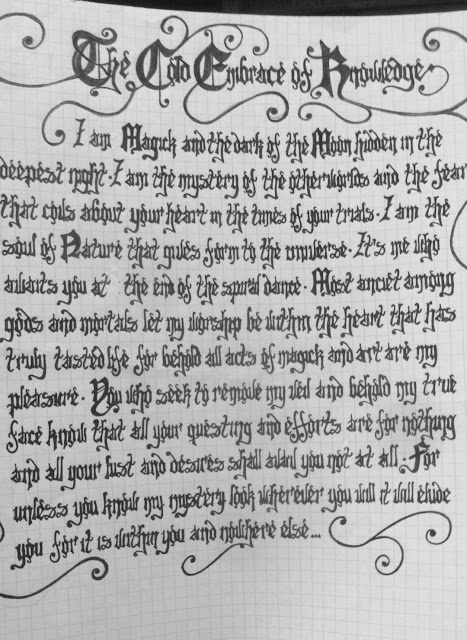 The Cold Embrace of Knowledge
I am Magick and the dark of the Moon hidden in the
deepest night. I am the mystery of the otherworlds and the fear
that coils about your heart in the times of your trials. I am the
soul of Nature that gives form to the universe. It's me who
awaits you at the end of the spiral dance. Most anciet among
gods and mortals let my worship be within the heart that has
truly tasted life for behold all acts of magick and art are my
pleasure. You who seek to remove my veil and behold my true
face know that all your questing and efforts are for nothing
and all your lust and desires shall avail you not at all. For
unless you know my mystery look wherever you will it will elude
you for it is within you and nowhere else...